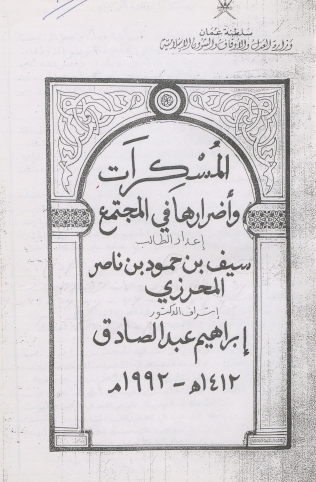 سلطنة عُمان
وزارة العدل والأوقاف والشؤون الإسلامية
المُسْكِرَات
وأضرارها في المجتمع
إعداد الطالب
سيف بن حمود بن ناصر
المحرزي
إشراف الدكتور
إبراهيم عبد الصادق
١٤١٢ه - ١٩٩٢م